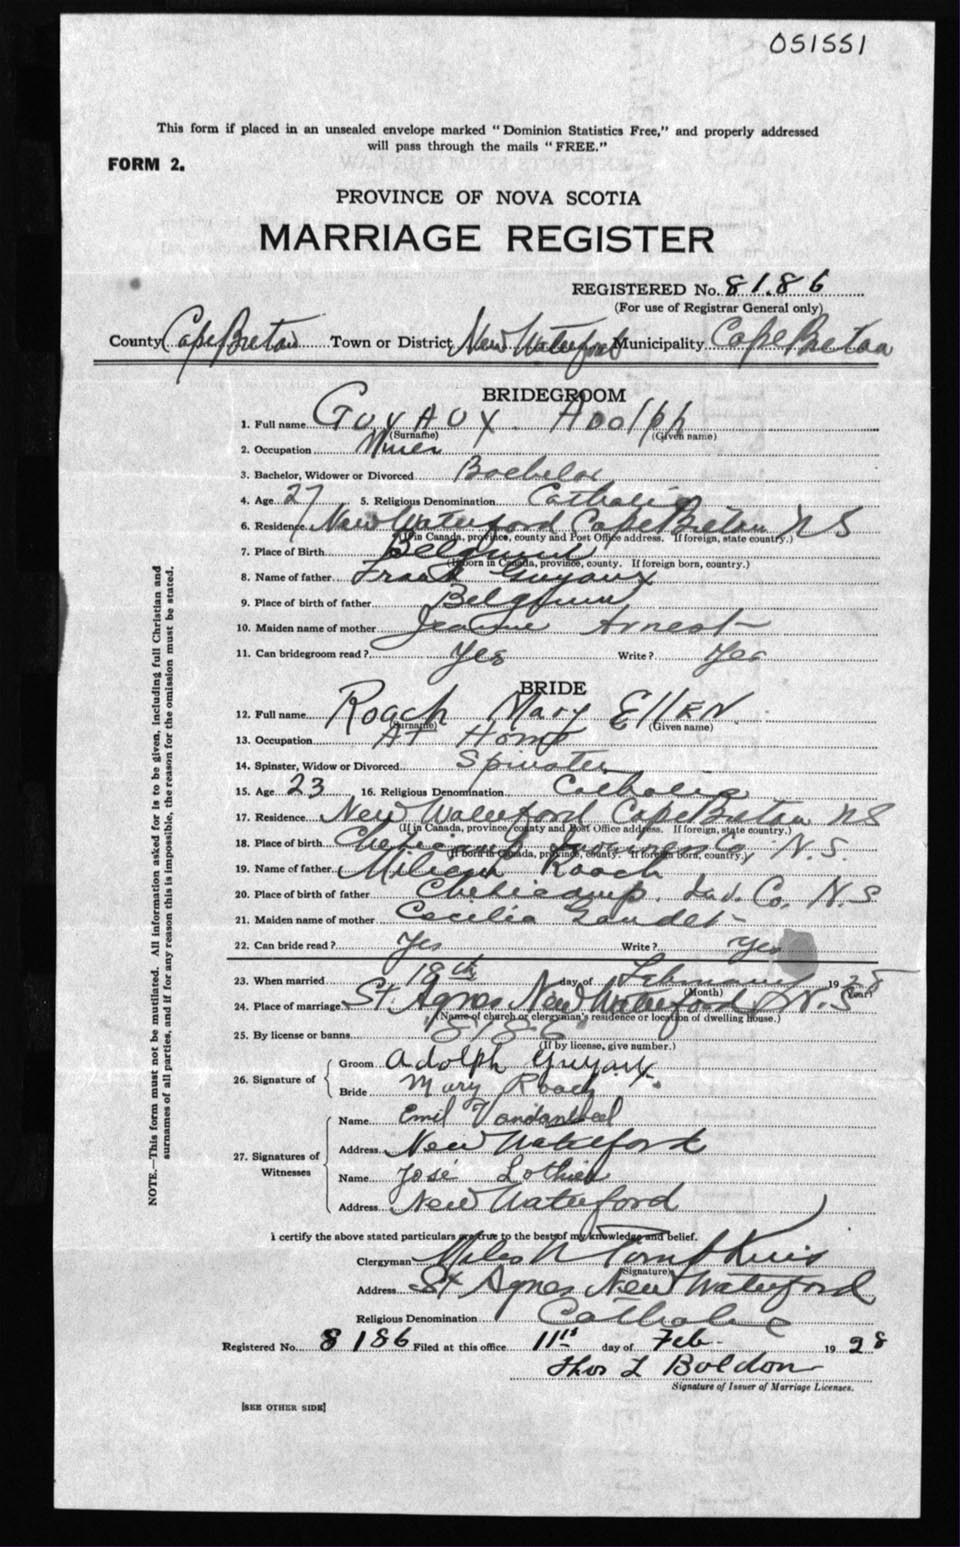 051551
This form if placed in an unsealed envelope marked "Dominion Statistics Free," and properly addressed
will pass through the mails "FREE."
FORM 2.
PROVINCE OF NOVA SCOTIA
MARRIAGE REGISTER
REGISTERED No. 8186
(For use of Registrar General only)
County Cape Breton Town or District New Waterford Municipality Cape Breton
BRIDEGROOM
1. Full name Guyaux Adolph
(Surname) (Given name)
2. Occupation Miner
3. Bachelor, Widower or Divorced Bachelor
4. Age 27 5. Religious Denomination Catholic
6. Residence New Waterford Cape Breton NS
(If in Canada, province, county and Post Office address. If foreign, state country.)
7. Place of Birth Belgium
(If born in Canada, province, county. If foreign born, country.)
8. Name of father Frank Guyaux
9. Place of birth of father Belgium
10. Maiden name of mother Jeanne Arnest
11. Can bridegroom read? Yes Write? Yes
BRIDE
12. Full name Roach Mary Ellen
(Surname) (Given name)
13. Occupation At Home
14. Spinster, Widow or Divorced Spinster
15. Age 23 16. Religious Denomination Catholic
17. Residence New Waterford Cape Breton NS
(If in Canada, province, county and Post Office address. If foreign, state country.)
18. Place of birth Cheticamp Inverness Co, N.S.
(If born in Canada, province, county. If foreign born, country.)
19. Name of father Roach
20. Place of birth of father Cheticamp. Co. N.S
21. Maiden name of mother Cecilia Gaudet
22. Can bride read? Yes Write? Yes
23. When married 18th day of February 1928
(Month) (Year)
24. Place of marriage St. Agnes New Waterford N.S
(Name of church or clergyman's residence or location of dwelling house.)
25. By license or banns 8186
(If by license, give number.)
26. Signature of Groom Adolph Guyaux
Bride Mary Roach
27. Signatures of Witnesses Name Emil
Address New Waterford
Name José
Address New Waterford
I certify the above stated particulars are true to the best of my knowledge and belief.
Clergyman Miles N Tompkins
(Signature)
Address St. Agnes New Waterford
Religious Denomination Catholic
Registered No. 8186 Filed at this office 11th day of Feb 1928
Thos L Boldon
Signature of Issuer of Marriage Licenses.
[SEE OTHER SIDE]
NOTE.—This form must not be mutilated. All information asked for is to be given, including full Christian and
surnames of all parties, and if for any reason this is impossible, the reason for the omission must be stated.